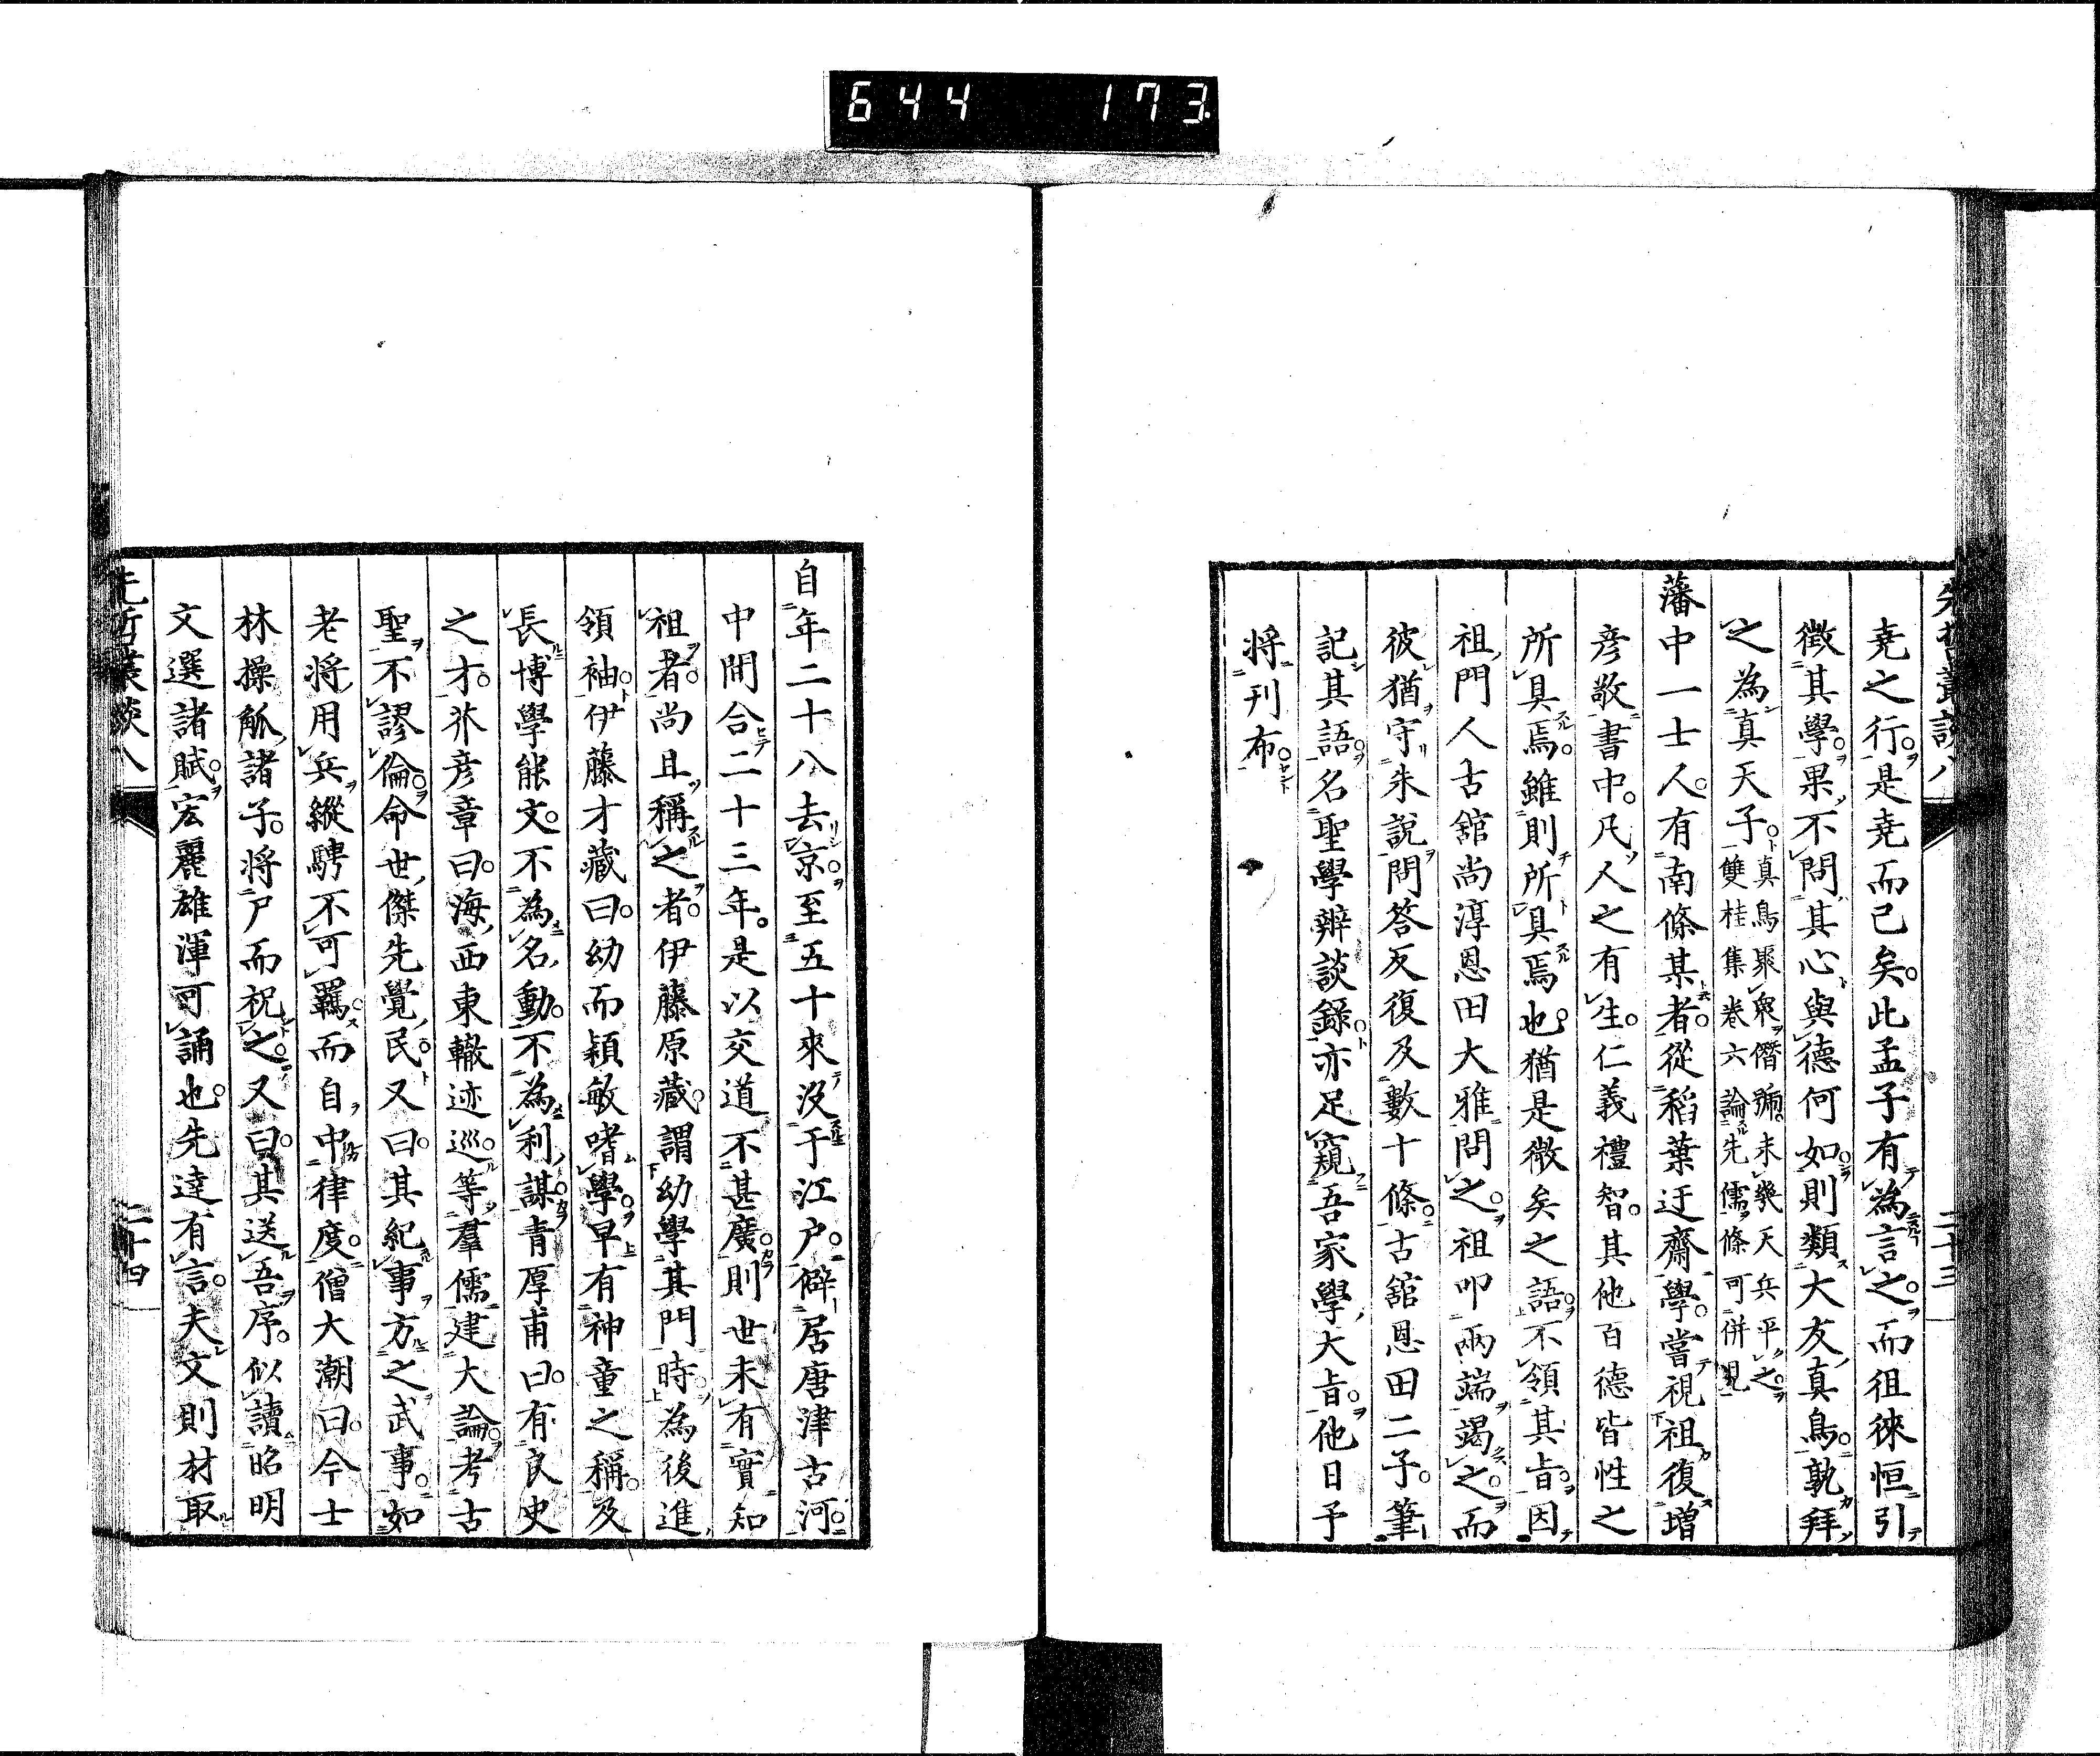 644 173
堯之行是堯而已矣此孟子有為言之而徂徠恒引
徵其學果不問其心與德何如則類大友真鳥孰拜
之為真天子真鳥聚衆僭號未幾天兵平之
雙桂集卷六論先儒條可併見
藩中一士人有南條某者從稻葉迂齋學嘗視祖復増
彦敬書中凡人之有生仁義禮智其他百德皆性之
所具焉雖則所具焉也猶是微矣之語不領其旨因
祖門人古舘尚淳恩田大雅問之祖叩兩端竭之而
彼猶守朱說問答反復及數十條古舘恩田二子筆
記其語名聖學辨談錄亦足窺吾家學大旨他日予
将刊布
自年二十八去京至五十來沒于江戸僻居唐津古河
中間合二十三年是以交道不甚廣則世未有實知
祖者尚且稱之者伊藤原藏謂幼學其門時為後進
領袖伊藤才藏曰幼而穎敏嗜學早有神童之稱及
長博學能文不為名動不為利謀青厚甫曰有良史
之才芥彦章曰海西東轍迹巡等羣儒建大論考古
聖不謬倫命世傑先覺民又曰其紀事方之武事如
老将用兵縱騁不可羈而自中律度僧大潮曰今士
林操觚諸子将尸而祝之又曰其送吾序似讀昭明
文選諸賦宏麗雄渾可誦也先達有言夫文則材取
二十四